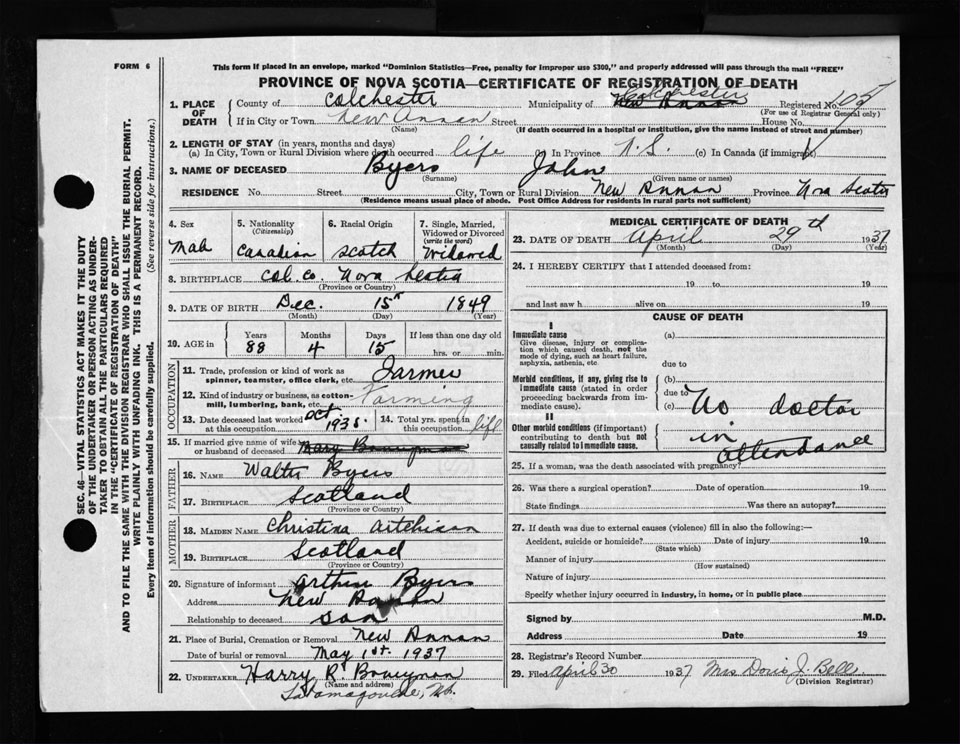 FORM 6
This form if placed in an envelope, marked "Dominion Statistics—Free, penalty for improper use $300," and properly addressed will pass through the mail "FREE"
PROVINCE OF NOVA SCOTIA—CERTIFICATE OF REGISTRATION OF DEATH
1. PLACE OF DEATH County of Colchester Municipality of Colchester New Annan Registered No. 105
(For use of Registrar General only)
If in City or Town New Annan Street House No.
(Name) (If death occurred in a hospital or institution, give the name instead of street and number)
2. LENGTH OF STAY (in years, months and days)
(a) In City, Town or Rural Division where death occurred life (b) In Province N.S. (c) In Canada (if immigrant)
3. NAME OF DECEASED Byers John
(Surname) (Given name or names)
RESIDENCE No. Street City, Town or Rural Division New Annan Province Nova Scotia
(Residence means usual place of abode. Post Office Address for residents in rural parts not sufficient)
4. Sex Male
5. Nationality (Citizenship) Canadian
6. Racial Origin Scotch
7. Single, Married, Widowed or Divorced (write the word) Widowed
8. BIRTHPLACE Col. Co. Nova Scotia
(Province or Country)
9. DATE OF BIRTH Dec. 15th 1849
(Month) (Day) (Year)
10. AGE in Years 88 Months 4 Days 15 If less than one day old hrs. or min.
OCCUPATION
11. Trade, profession or kind of work as spinner, teamster, office clerk, etc. Farmer
12. Kind of industry or business, as cotton-mill, lumbering, bank, etc. Farming
13. Date deceased last worked at this occupation Oct. 1935
14. Total yrs. spent in this occupation life
15. If married give name of wife or husband of deceased Mary Bonnyman
FATHER
16. NAME Walter Byers
17. BIRTHPLACE Scotland
(Province or Country)
MOTHER
18. MAIDEN NAME Christina Aitchison
19. BIRTHPLACE Scotland
(Province or Country)
20. Signature of informant Arthur Byers
Address New Annan
Relationship to deceased son
21. Place of Burial, Cremation or Removal New Annan
Date of burial or removal May 1st. 1937
22. UNDERTAKER Harry R. Bonnyman
(Name and address)
Tatamagouche, N.S.
MEDICAL CERTIFICATE OF DEATH
23. DATE OF DEATH April 29th 1937
(Month) (Day) (Year)
24. I HEREBY CERTIFY that I attended deceased from:
19 to 19
and last saw h alive on 19
CAUSE OF DEATH
I
Immediate cause (a)
Give disease, injury or complication which caused death, not the mode of dying, such as heart failure, asphyxia, asthenia, etc.
due to
Morbid conditions, if any, giving rise to immediate cause (stated in order proceeding backwards from immediate cause).
(b)
due to
(c) No doctor
II
Other morbid conditions (if important) contributing to death but not causally related to immediate cause.
in
attendance
25. If a woman, was the death associated with pregnancy?
26. Was there a surgical operation? Date of operation 19
State findings Was there an autopsy?
27. If death was due to external causes (violence) fill in also the following:—
Accident, suicide or homicide? Date of injury 19
(State which)
Manner of injury
(How sustained)
Nature of injury
Specify whether injury occurred in industry, in home, or in public place
Signed by M.D.
Address Date 19
28. Registrar's Record Number
29. Filed April 30 1937 Mrs Doris J. Bell
(Division Registrar)
SEC. 46—VITAL STATISTICS ACT MAKES IT THE DUTY
OF THE UNDERTAKER OR PERSON ACTING AS UNDER-
TAKER TO OBTAIN ALL THE PARTICULARS REQUIRED
IN THE "CERTIFICATE OF REGISTRATION OF DEATH"
AND TO FILE THE SAME WITH THE DIVISION REGISTRAR WHO SHALL ISSUE THE BURIAL PERMIT.
WRITE PLAINLY WITH UNFADING INK. THIS IS A PERMANENT RECORD.
Every item of information should be carefully supplied. (See reverse side for instructions.)